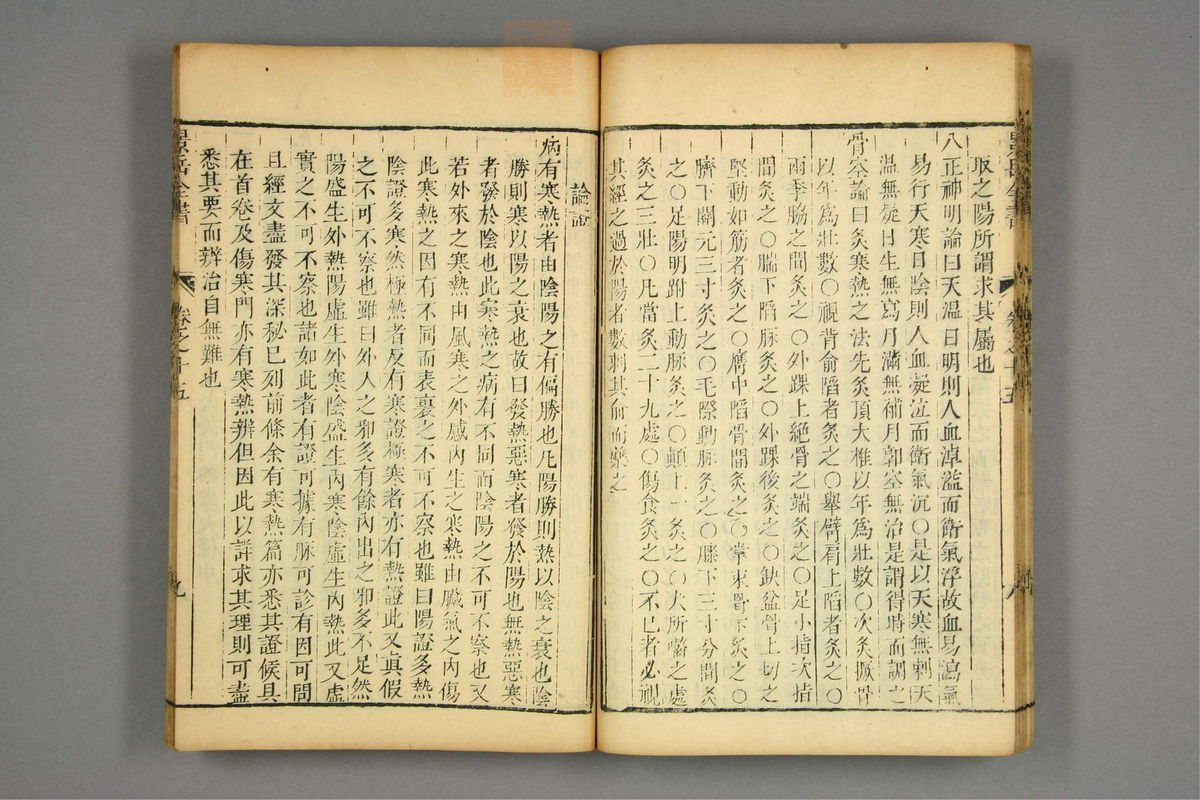 取之陽所謂求其屬也
八正神明論曰天溫日明則人血淖溢而衛氣浮故血易瀉氣
易行天寒日陰則人血凝泣而衛氣沉〇是以天寒無刺天
溫無疑月生無瀉月滿無補月郭空無治是謂得時而調之
骨空論曰灸寒熱之法先灸頂大椎以年爲壯數〇次灸撅骨
以年爲壯數〇視背俞陷者灸之〇舉臂肩上陷者灸之〇
兩季脇之間灸之〇外踝上絕骨之端灸之〇足小指次指
間灸之〇腨下陷脉灸之〇外踝後灸之〇缺盆骨上切之
堅動如筋者灸之〇膺中陷骨間灸之〇掌束骨下灸之〇
臍下關元三寸灸之〇毛際動脉灸之〇膝下三寸分間灸
之〇足陽明跗上動脉灸之〇顛上一灸之〇犬所嚙之處
灸之三壯〇凡當灸二十九處〇傷食灸之〇不已者必視
其經之過於陽者數刺其俞而藥之
論證
病有寒熱者由陰陽之有偏勝也凡陽勝則熱以陰之衰也陰
勝則寒以陽之衰也故曰發熱惡寒者發於陽也無熱惡寒
者發於陰也此寒熱之病有不同而陰陽之不可不察也又
若外來之寒熱由風寒之外感內生之寒熱由臟氣之內傷
此寒熱之因有不同而表裏之不可不察也雖曰陽證多熱
陰證多寒然極熱者反有寒證極寒者亦有熱證此又眞假
之不可不察也雖曰外人之邪多有餘內出之邪多不足然
陽盛生外熱陽虛生外寒陰盛生內寒陰虛生內熱此又虛
實之不可不察也諸如此者有證可據有脉可診有因可問
且經文盡發其深秘已列前條余有寒熱篇亦悉其證候具
在首卷及傷寒門亦有寒熱辨但因此以詳求其理則可盡
悉其要而辨治自無難也
景岳全書
卷之十五
八
景岳全書
卷之十五
九